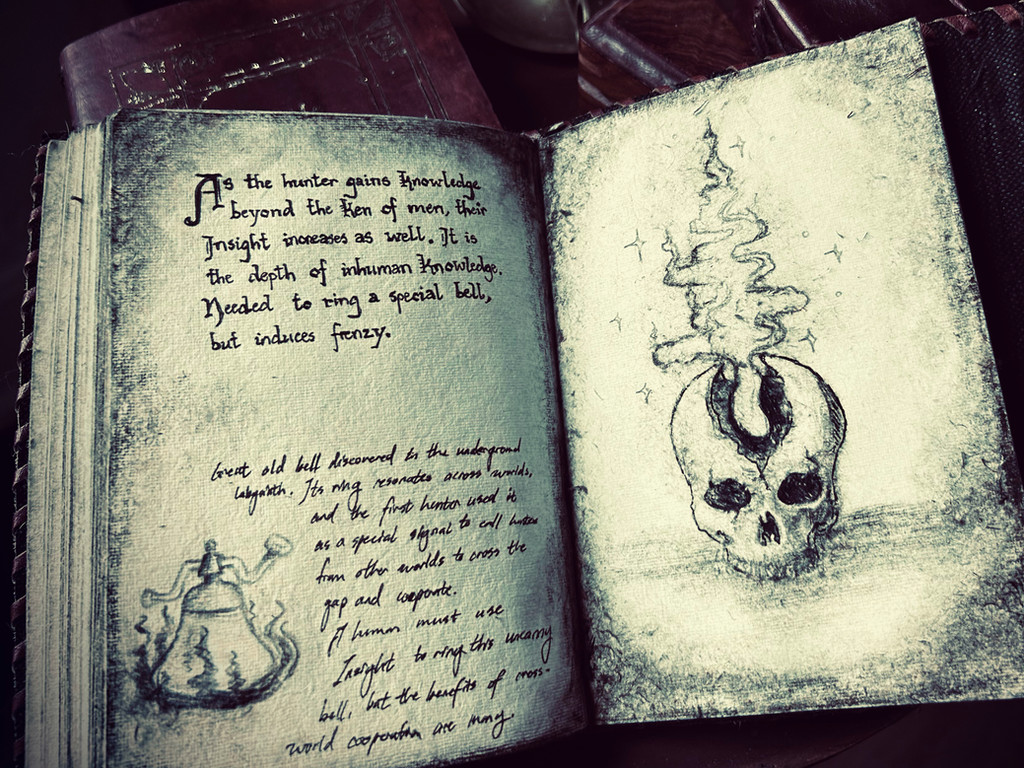 As the hunter gains Knowledge
beyond the Ken of men, their
Insight increases as well. It is
the depth of inhuman Knowledge.
Needed to ring a special bell,
but induces frenzy.
Great old bell discovered in the underground
labyrinth. Its ring resonates across worlds,
and the first hunter used it
as a special signal to call hunters
from other worlds to cross the
gap and cooperate.
A human must use
Insight to ring this uncanny
bell, but the benefits of cross-
world cooperation are many.